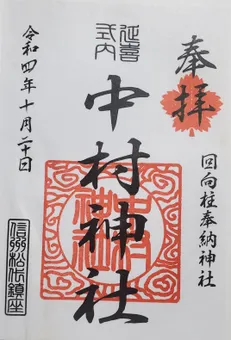 奉拝
回向柱奉納神社
延喜
式内
中村神社
令和四年十月二十日
信州松代鎮座